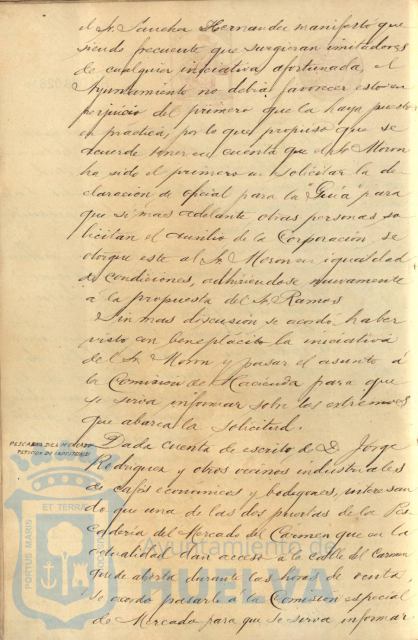 el Sr. Sanchez Hernandez manifestó que
siendo frecuente que surgieran imitadores
de cualquier iniciativa afortunada, el
Ayuntamiento no debia favorecer esto en
perjuicio del primero que la haya puesto
en practica, por lo que propuso que se
acuerde tener en cuenta que el Sr. Moron
ha sido el primero en solicitar la de
claracion de oficial para la "Guia" para
que si mas adelante otras personas so
licitan el auxilio de la Corporación, se
otorgue este al Sr. Moron en igualdad
de condiciones, adhiriendose nuevamente
á la propuesta del Sr. Ramos
Sin mas discusión se acordó haber
visto con beneplácito la iniciativa
del Sr. Moron y pasar el asunto á
la Comision de Hacienda para que
se sirva informar sobre los extremos
que abarca la solicitud.
PESCADERIA DEL MERCADO
PETICION DE INDUSTRIALES
Dada cuenta de escrito de D. Jorge
Rodriguez y otros vecinos industriales
de cafés economicos y bodegones, interesan
do que una de las dos puertas de la Pes
caderia del Mercado del Carmen que en la
actualidad dan acceso a la calle del Carmen
quede abierta durante las horas de venta
se acordo pasarlo á la Comision especial
de Mercado para que se sirva informar
PORTUS MARIS ET TERRAE
Ayuntamiento de
HUELVA